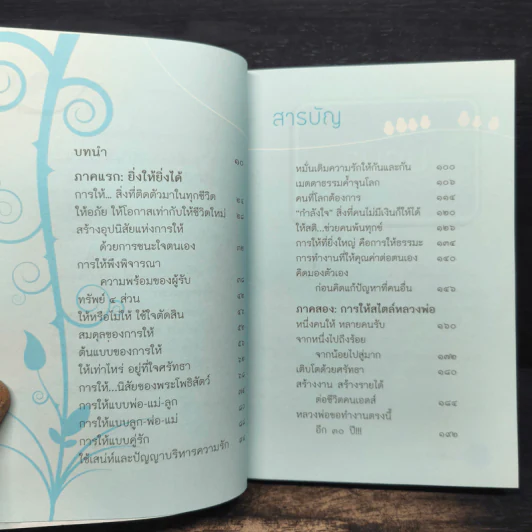 บทนำ ๑๐
ภาคแรก: ยิ่งให้ยิ่งได้
การให้... สิ่งที่ติดตัวมาในทุกชีวิต
ให้อภัย ให้โอกาสเท่ากับให้ชีวิตใหม่
สร้างอุปนิสัยแห่งการให้
ด้วยการชนะใจตนเอง
การให้พึงพิจารณา
ความพร้อมของผู้รับ
ทรัพย์ ๔ ส่วน
ให้หรือไม่ให้ ใช้ใจตัดสิน
สมดุลของการให้
ต้นแบบของการให้
ให้เท่าไหร่ อยู่ที่ใจศรัทธา
การให้...นิสัยของพระโพธิสัตว์
การให้แบบพ่อ-แม่-ลูก
การให้แบบลูก-พ่อ-แม่
การให้แบบคู่รัก
ใช้เสน่ห์และปัญญาบริหารความรัก
สารบัญ
หมั่นเติมความรักให้กันและกัน ๑๐๐
เมตตาธรรมค้ำจุนโลก ๑๐๖
คนที่โลกต้องการ ๑๑๔
“กำลังใจ” สิ่งที่คนไม่มีเงินก็ให้ได้ ๑๒๐
ให้สติ...ช่วยคนพ้นทุกข์ ๑๒๖
การให้ที่ยิ่งใหญ่ คือการให้ธรรมะ ๑๓๔
การทำงานที่ให้คุณค่าต่อตนเอง ๑๔๐
คิดมองตัวเอง
ก่อนคิดแก้ปัญหาที่คนอื่น ๑๔๖
ภาคสอง: การให้สไตล์หลวงพ่อ
หนึ่งคนให้ หลายคนรับ ๑๖๐
จากหนึ่งไปถึงร้อย
จากน้อยไปสู่มาก ๑๗๒
เติบโตด้วยศรัทธา ๑๘๐
สร้างงาน สร้างรายได้
ต่อชีวิตคนเอดส์ ๑๘๔
หลวงพ่อขอทำงานตรงนี้
อีก ๓๐ ปี!!! ๑๙๒